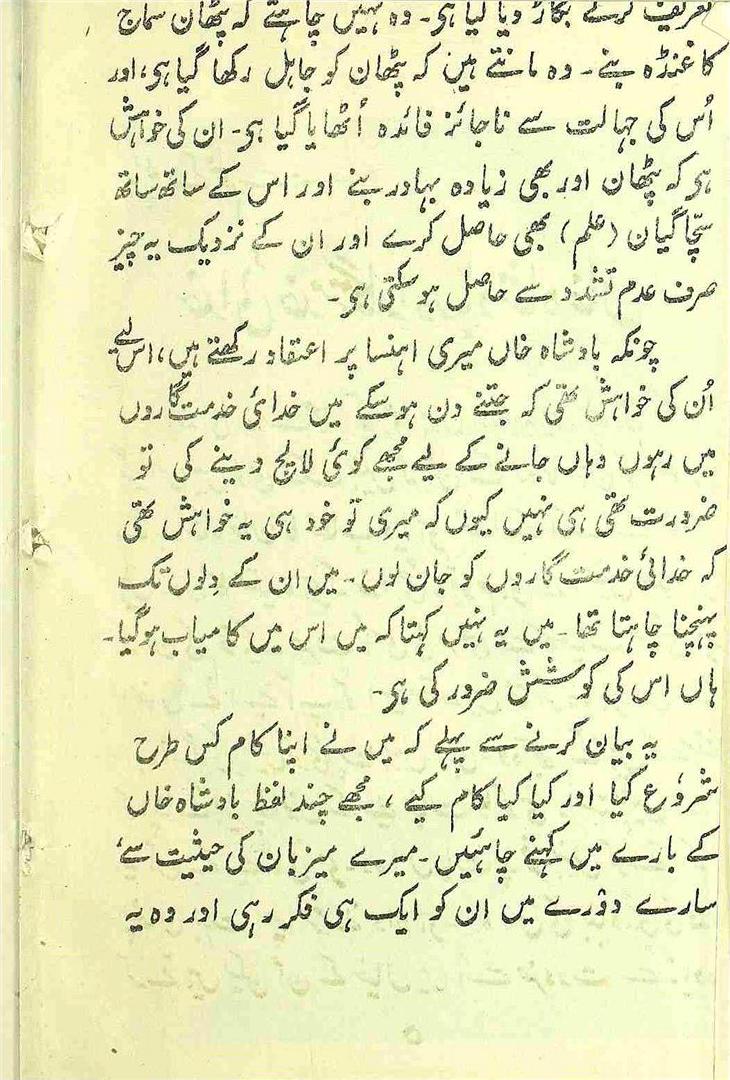 تعریف کرکے بگاڑ دیا گیا ہی۔ وہ نہیں چاہتے کہ پٹھان سماج
کا غنڈہ بنے۔ وہ مانتے ہیں کہ پٹھان کو جاہل رکھا گیا ہی، اور
اُس کی جہالت سے ناجائز فائدہ اُٹھایا گیا ہی۔ ان کی خواہش
ہی کہ پٹھان اور بھی زیادہ بہادر بنے اور اس کے ساتھ ساتھ
سچّا گیان (علم) بھی حاصل کرے اور ان کے نزدیک یہ چیز
صرف عدم تشدد سے حاصل ہو سکتی ہی۔
چونکہ بادشاہ خاں میری اہنسا پر اعتقاد رکھتے ہیں، اس لیے
اُن کی خواہش تھی کہ جتنے دن ہو سکے میں خدائی خدمت گاروں
میں رہوں وہاں جانے کے لیے مجھے کوئی لالچ دینے کی تو
ضرورت تھی ہی نہیں کیوں کہ میری تو خود ہی یہ خواہش تھی
کہ خدائی خدمت گاروں کو جان لوں۔ میں ان کے دِلوں تک
پہنچنا چاہتا تھا۔ میں یہ نہیں کہتا کہ میں اس میں کامیاب ہو گیا۔
ہاں اس کی کوشش ضرور کی ہی۔
یہ بیان کرنے سے پہلے کہ میں نے اپنا کام کس طرح
شروع کیا اور کیا کیا کام کیے، مجھے چند لفظ بادشاہ خاں
کے بارے میں کہنے چاہئیں۔ میرے میزبان کی حیثیت سے،
سارے دَورے میں ان کو ایک ہی فکر رہی اور وہ یہ